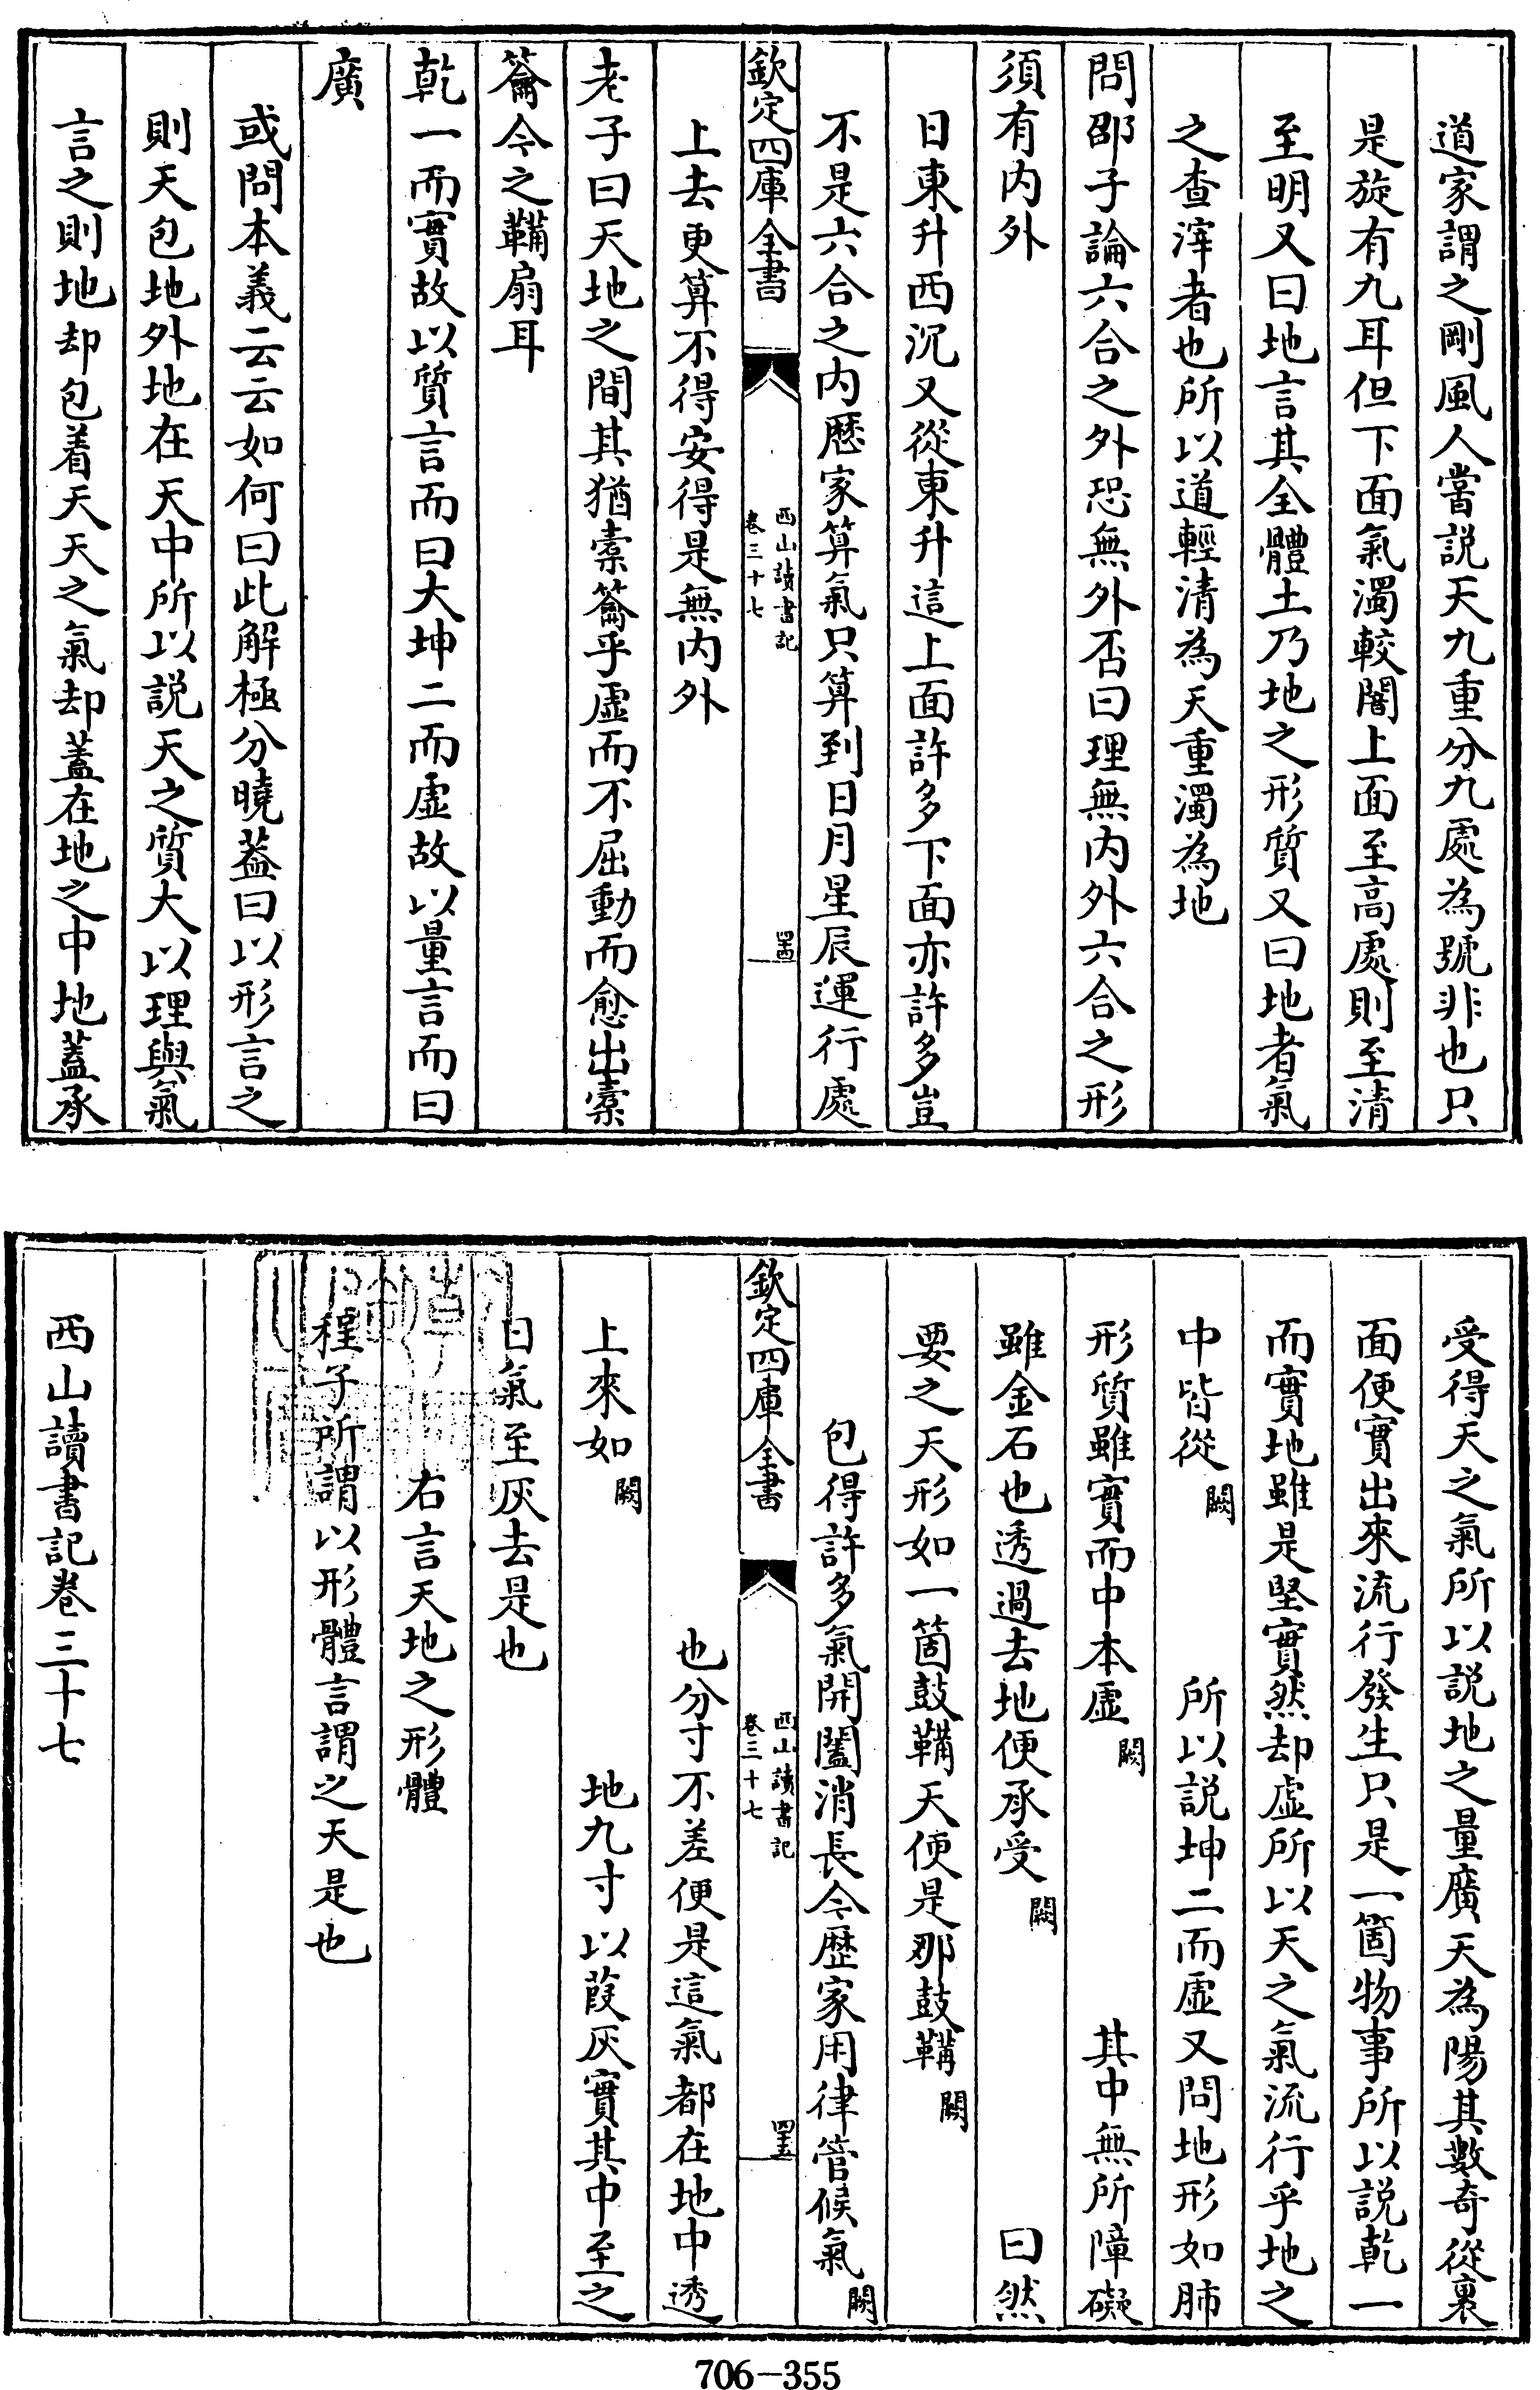 道家謂之剛風人當説天九重分九處為號非也只
是旋有九耳但下面氣濁較闇上面至高處則至清
至明又曰地言其全體土乃地之形質又曰地者氣
之查滓者也所以道輕清為天重濁為地
問邵子論六合之外恐無外否曰理無内外六合之形
須有内外
日東升西沉又從東升這上面許多下面亦許多豈
不是六合之内厯家算氣只算到日月星辰運行處
欽定四庫全書
西山讀書記
卷三十七
四十四
上去更算不得安得是無内外
老子曰天地之間其猶橐籥乎虚而不屈動而愈出橐
籥今之鞴扇耳
乾一而實故以質言而曰大坤二而虚故以量言而曰
廣
或問本義云云如何曰此解極分曉葢曰以形言之
則天包地外地在天中所以説天之質大以理與氣
言之則地却包着天天之氣却蓋在地之中地蓋承
受得天之氣所以説地之量廣天為陽其數奇從裏
面便實出來流行發生只是一箇物事所以説乾一
而實地雖是堅實然却虚所以天之氣流行乎地之
中皆從闕所以説坤二而虚又問地形如肺
形質雖實而中本虚闕其中無所障礙
雖金石也透過去地便承受闕曰然
要之天形如一箇鼓鞴天便是那鼓鞴闕
包得許多氣開闔消長今歴家用律管候氣闕
欽定四庫全書
西山讀書記
卷三十七
四十五
也分寸不差便是這氣都在地中透
上來如闕地九寸以葭灰實其中至之
日氣至灰去是也
右言天地之形體
程子所謂以形體言謂之天是也
西山讀書記卷三十七
706-355